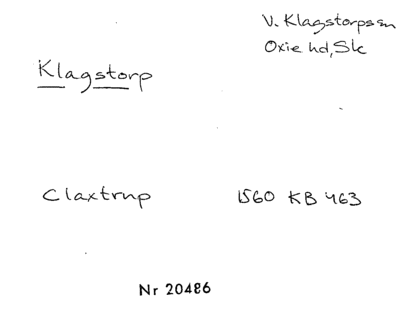 V. Klagstorps sn
Oxie hd, Sk
Klagstorp
Claxtrup 1560 KB 463
Nr 20486